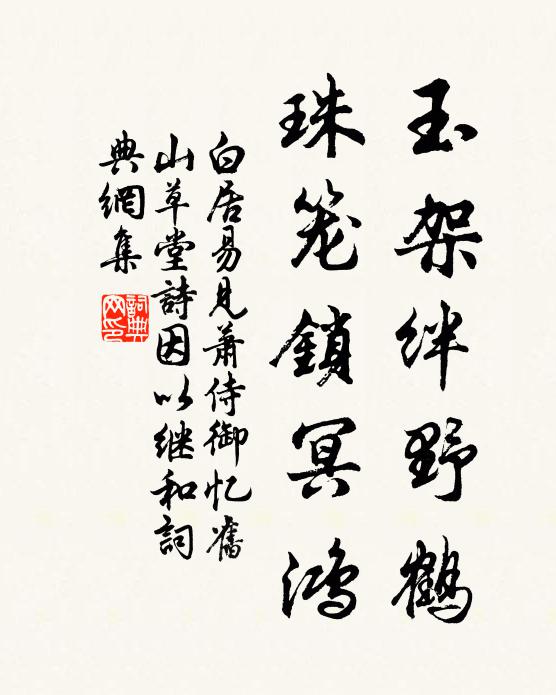 玉架绊野鹤
珠笼鎖冥鸿
白居易見蕭侍御忆舊
山草堂詩因以继和詞
典網集
詞典
网印